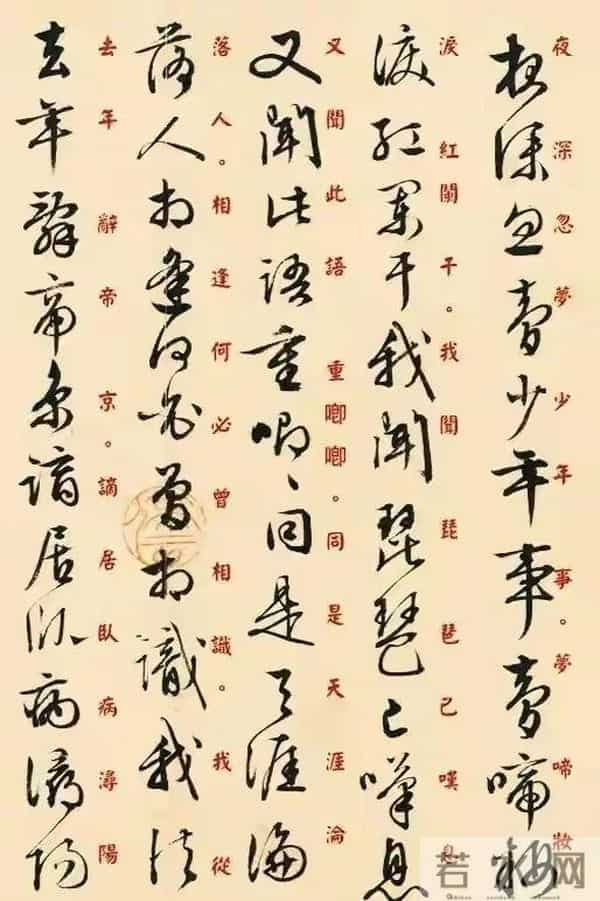 夜深忽夢少年事。夢啼妝
夜深忽夢少年事夢啼妝
淚紅闌干。我聞琵琶已嘆息
淚紅闌干我聞琵琶已嘆息
又聞此語重唧唧。同是天涯淪
又聞此語重唧〻同是天涯淪
落人。相逢何必曾相識。我從
落人相逢何必曾相識我從
去年辭帝京。謫居臥病潯陽
去年辭帝京謫居臥病潯陽